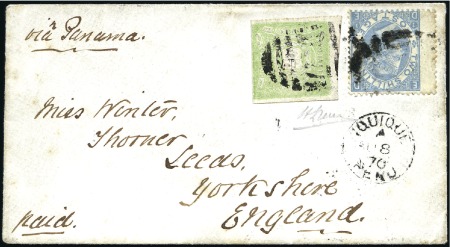 via Panama.
TWO SHILLINGS
Miss Winter,
Thorner
Leeds,
Yorkshire
England.
paid.
IQUIQUE
A
8
70
PERU